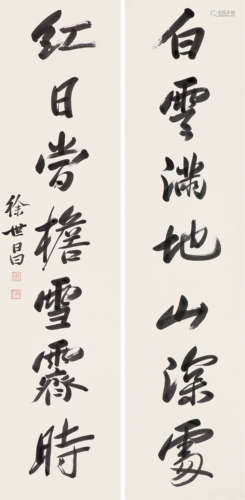 白雲滿地山深處
紅日當檐雪霽時
徐世昌